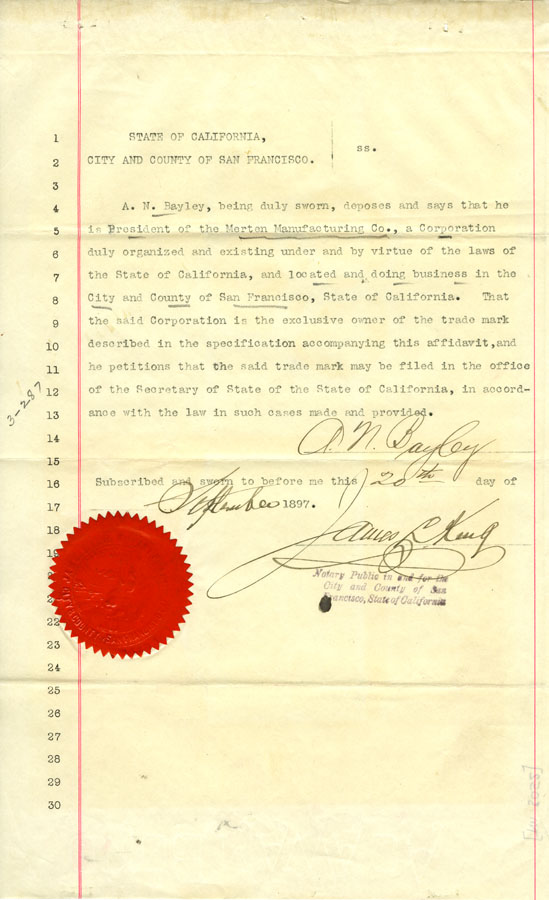 1 STATE OF CALIFORNIA,
2 CITY AND COUNTY OF SAN FRANCISCO. ss.
3
4 A. N. Bayley, being duly sworn, deposes and says that he
5 is President of the Merten Manufacturing Co., a Corporation
6 duly organized and existing under and by virtue of the laws of
7 the State of California, and located and doing business in the
8 City and County of San Francisco, State of California. That
9 the said Corporation is the exclusive owner of the trade mark
10 described in the specification accompanying this affidavit,and
11 he petitions that the said trade mark may be filed in the office
12 of the Secretary of State of the State of California, in accord-
13 ance with the law in such cases made and provided.
3-287
14 A. N. Bayley
15
16 Subscribed and sworn to before me this ) 20th day of
17 September 1897.
18 James L. King
Notary Public in and for the
City and County of San
Francisco, State of California
22
23
24
25
26
27
28
29
30